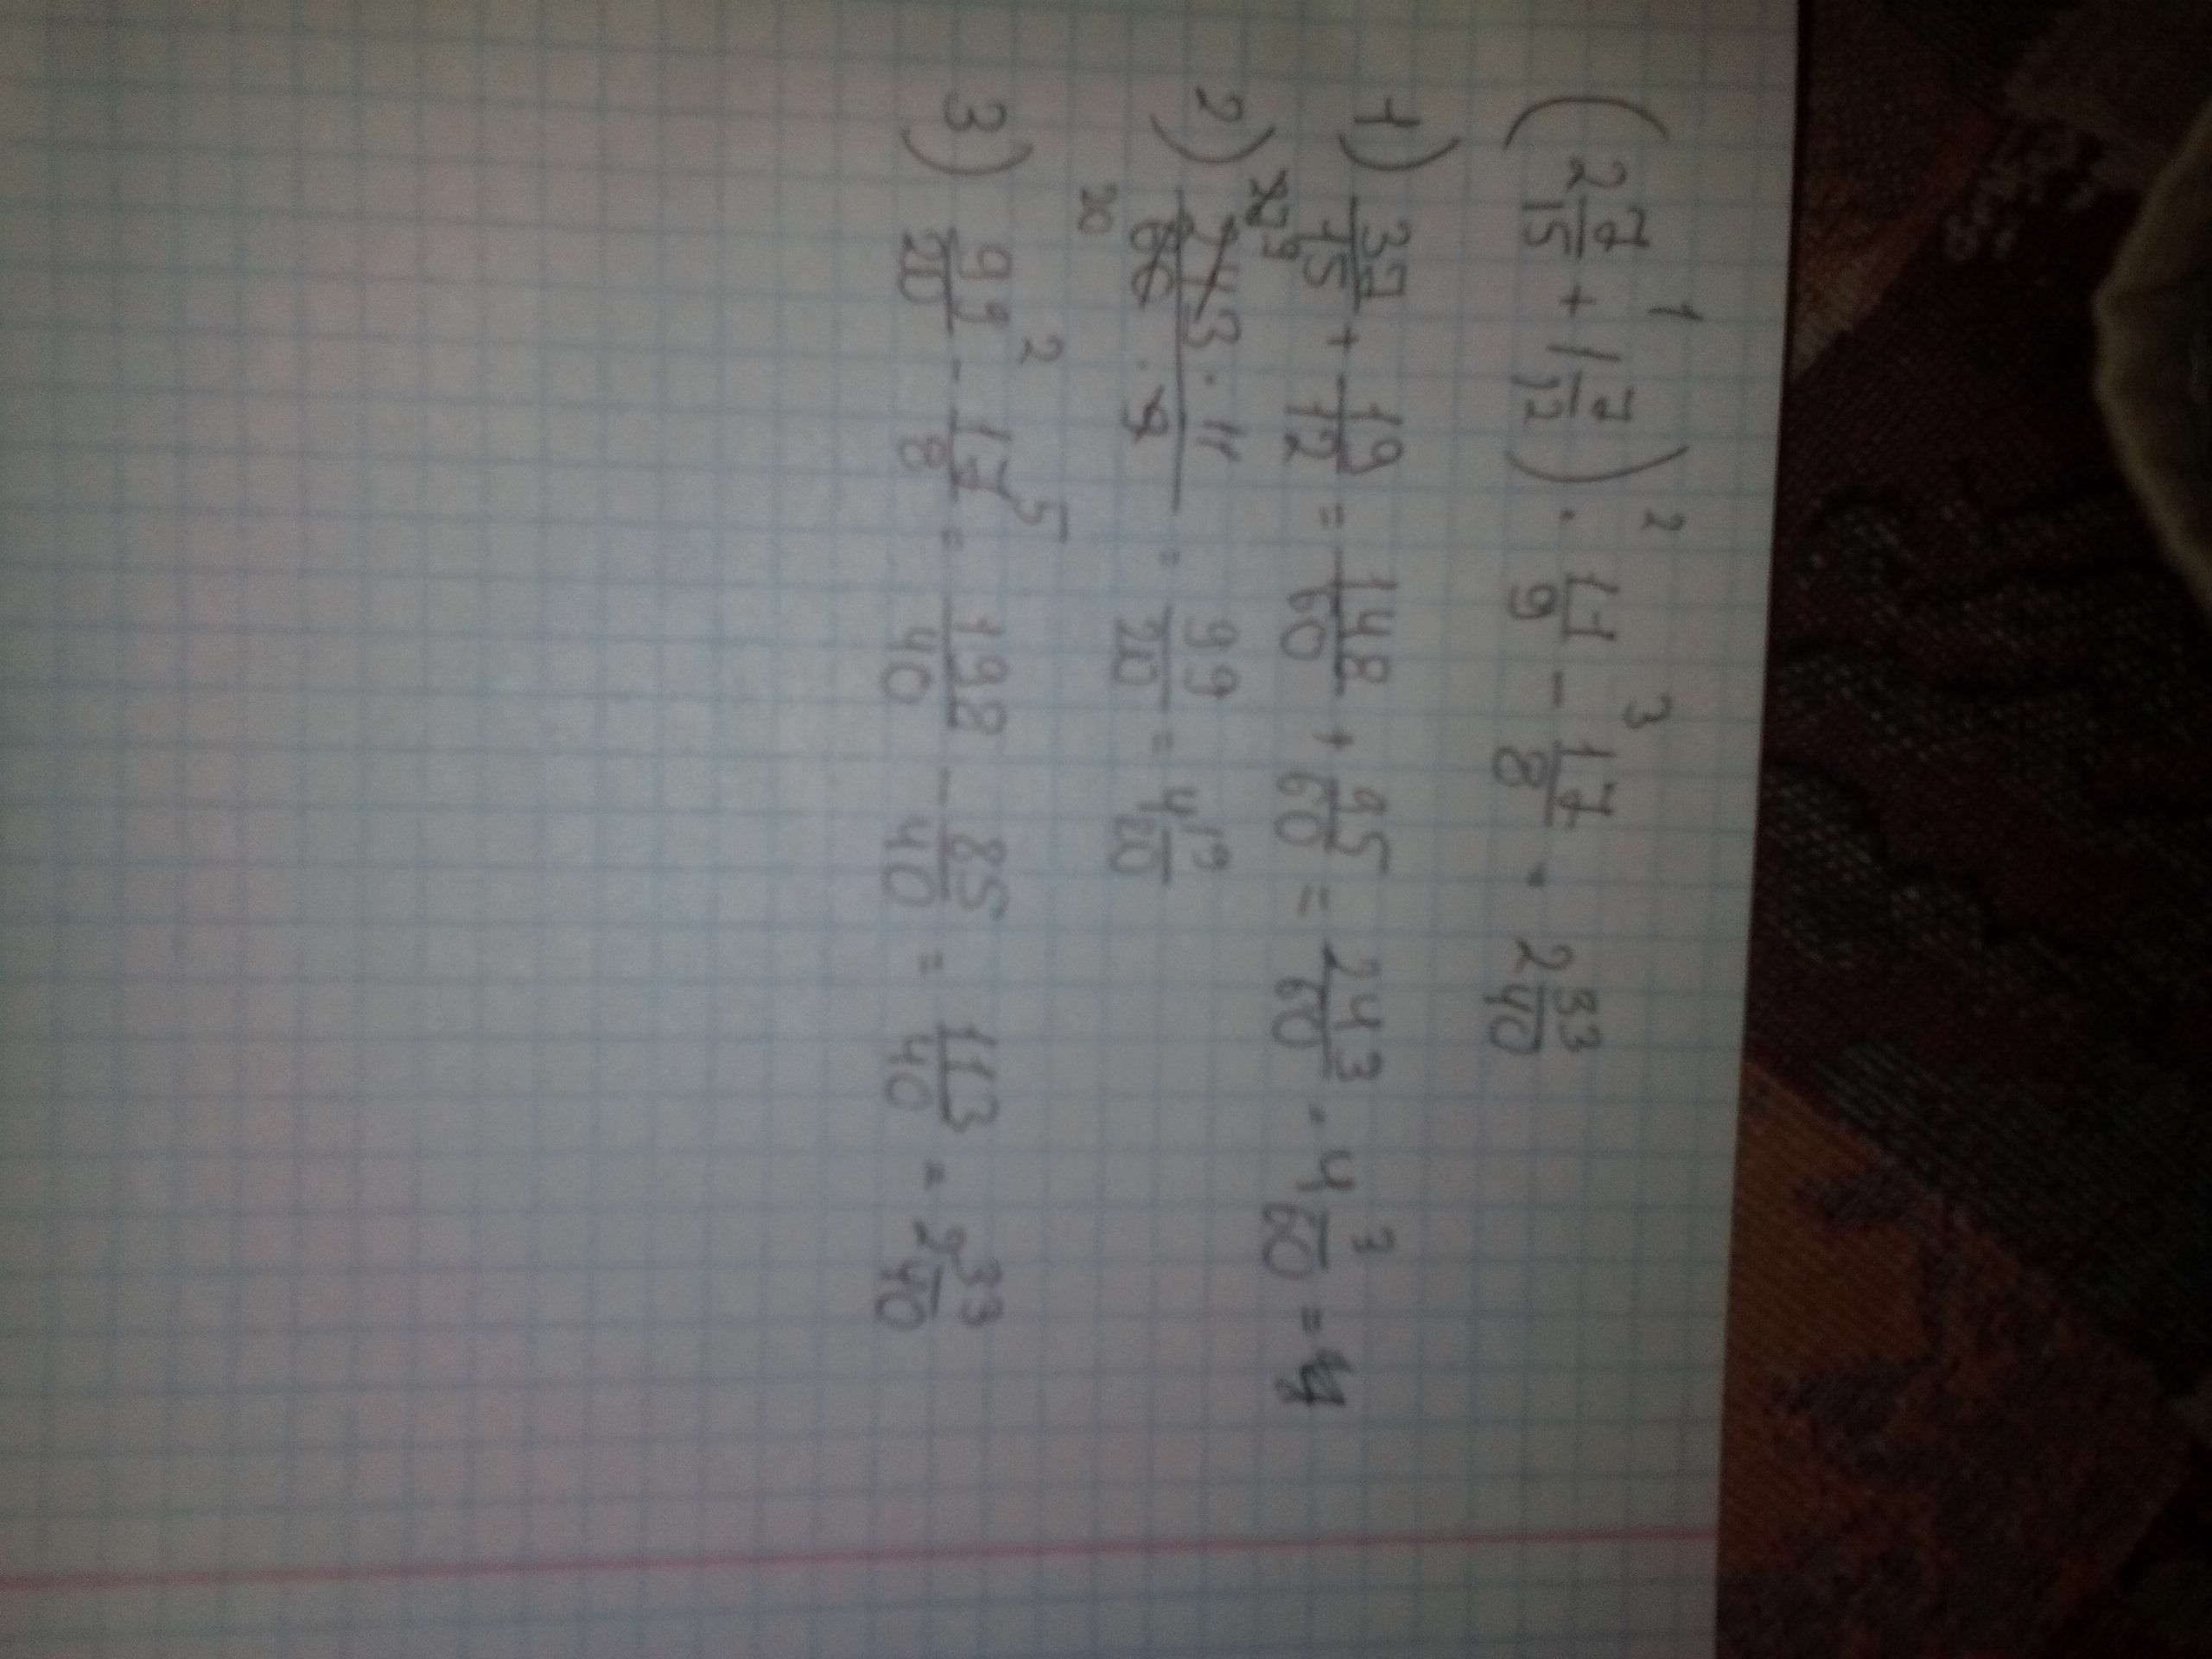 (2 7/15 + 1 7/12) · 11/9 − 17/8 = 2 33/40
1) 37/15 + 19/12 = 148/60 + 95/60 = 243/60 = 4 3/60 =
2) 243 · 11 / 60 · 9 = 99/20 = 4 19/20
3) 99/20 − 17/8 = 198/40 − 85/40 = 113/40 = 2 33/40